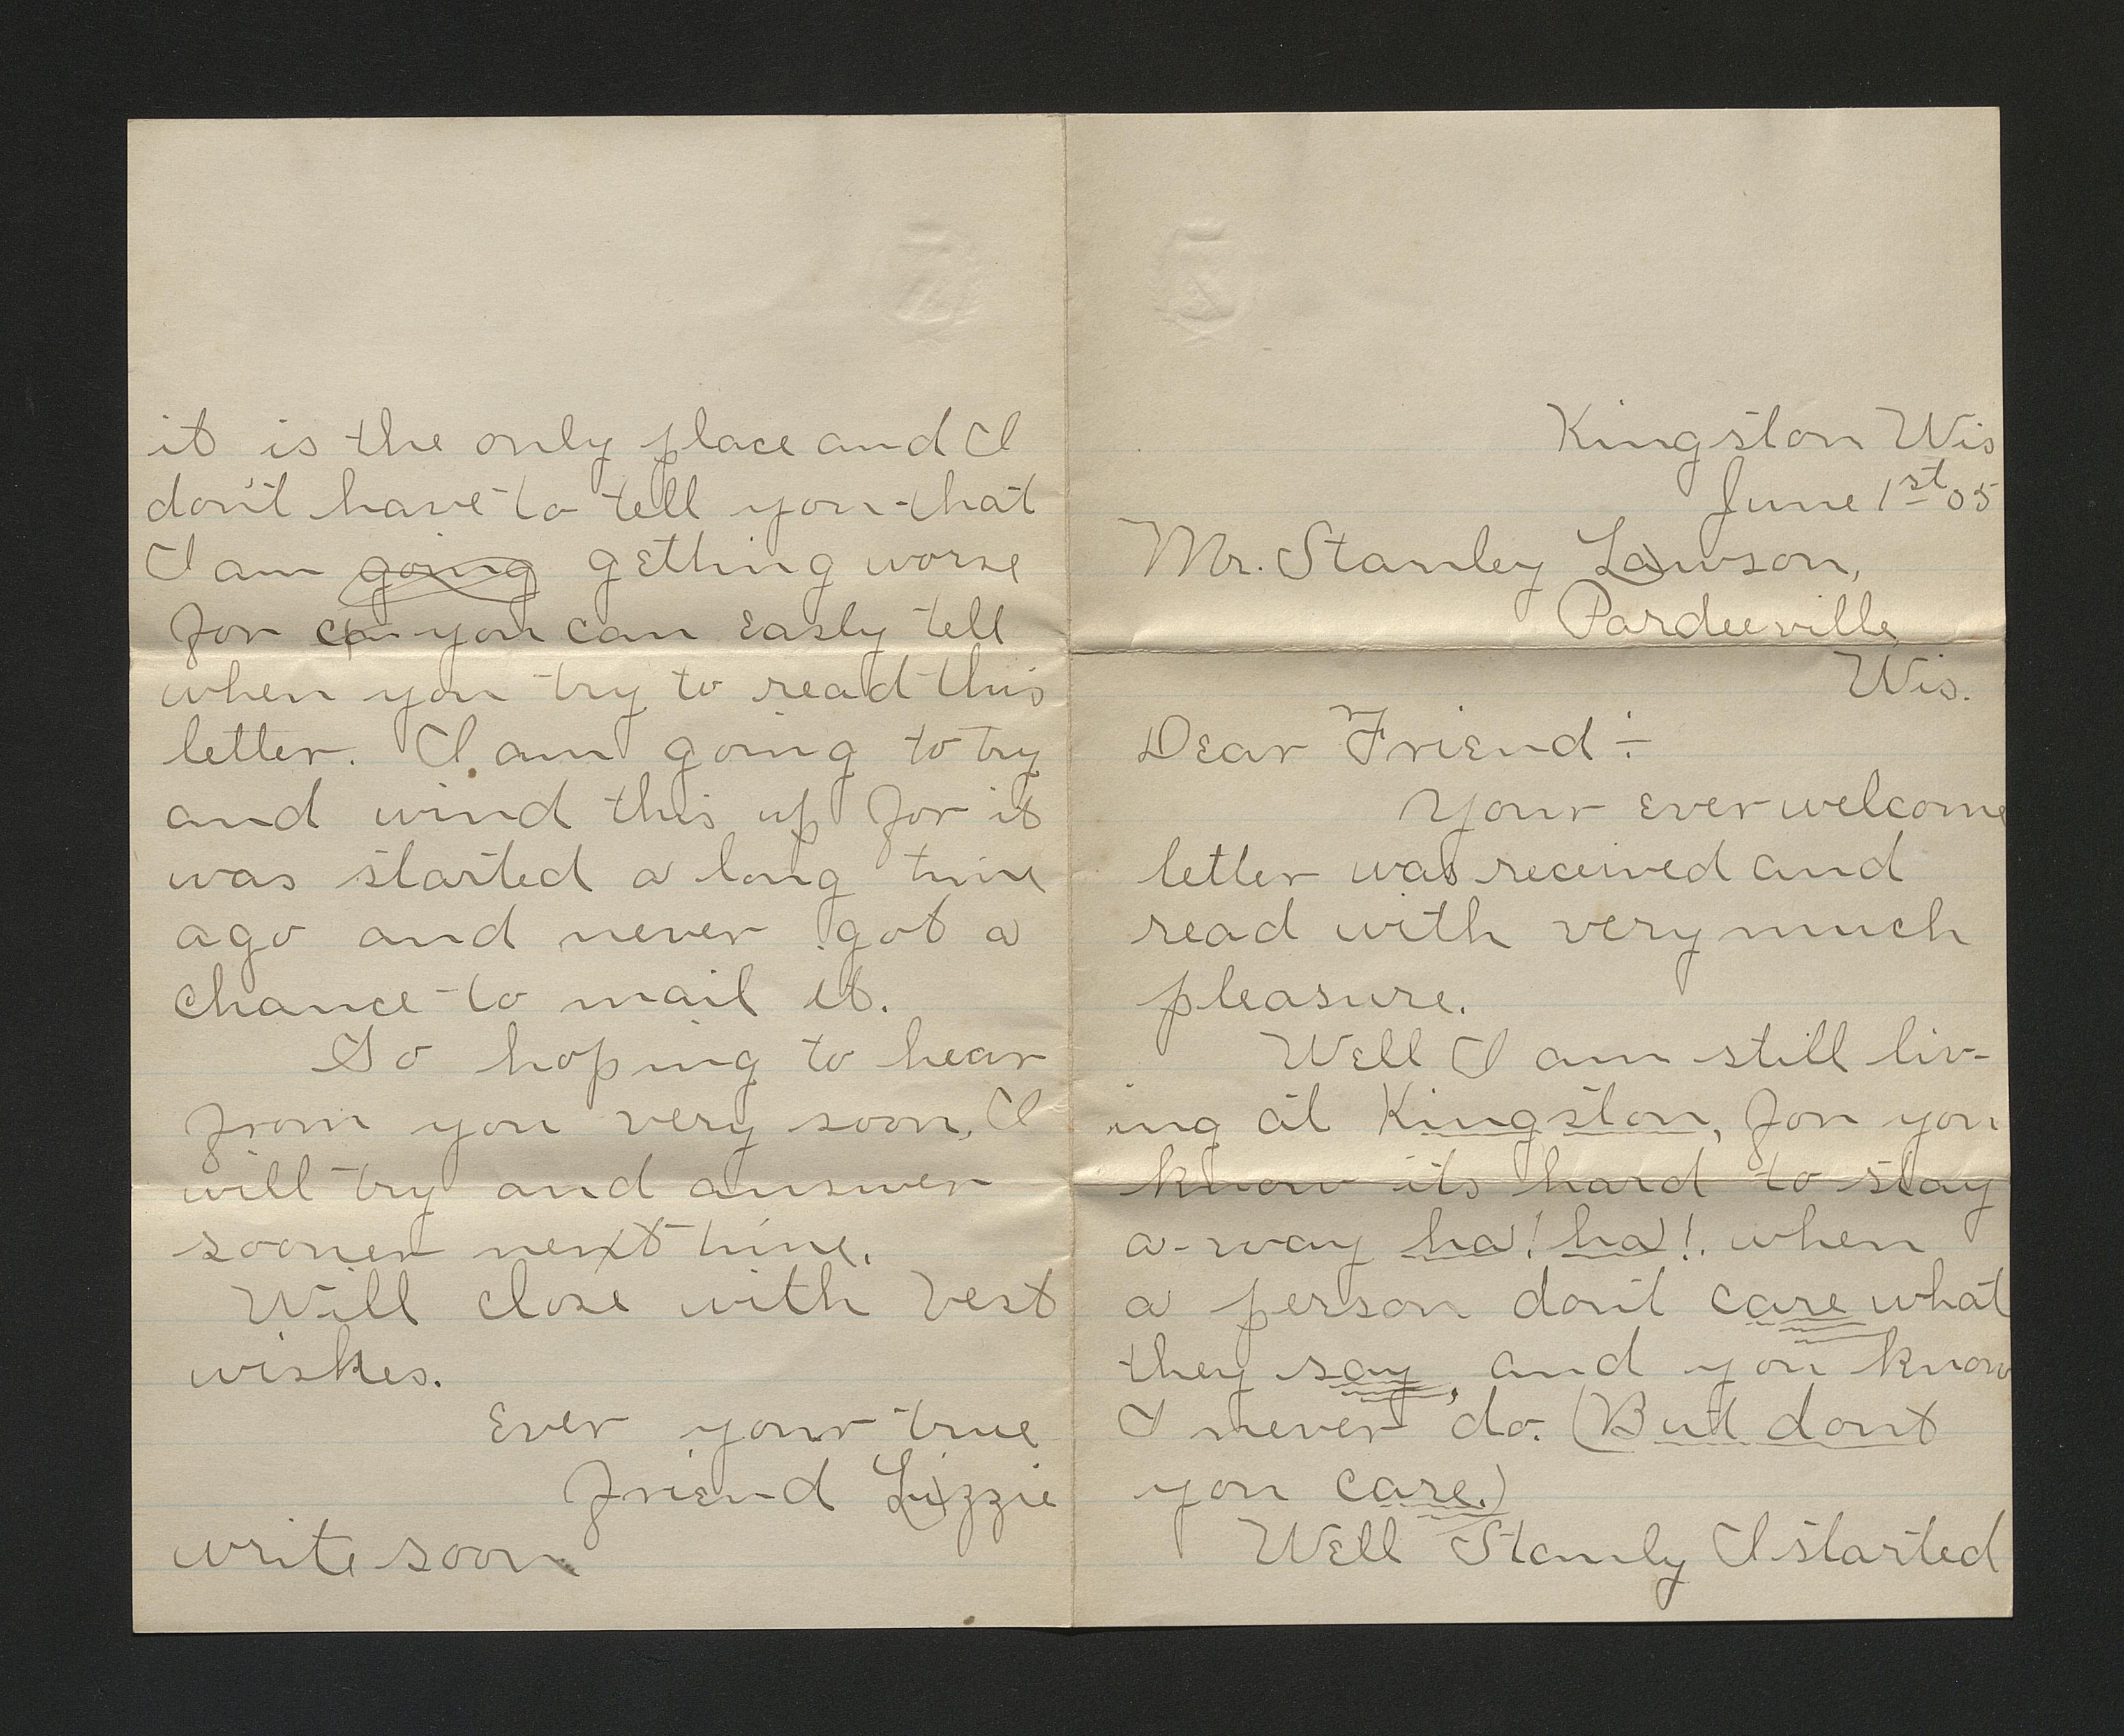 Kingston Wis
June 1st 05
Mr. Stanley Lawson,
Pardeeville
Wis.
Dear Friend :-
Your ever welcome
letter was received and
read with very much
pleasure.
Well I am still liv-
ing at Kingston, for you
know its hard to stay
a-way ha! ha!. when
a person don't care what
they say, and you know
I never do. (But dont
you care.)
Well Stanly I started
it is the only place and I
don't have to tell you that
I am going gething worse
for can you can easly tell
when you try to read this
letter. I am going to try
and wind this up for it
was started a long time
ago and never got a
chance to mail it.
So hoping to hear
from you very soon, I
will try and answer
sooner next time.
Will close with best
wishes.
Ever your true
friend Lizzie
write soon